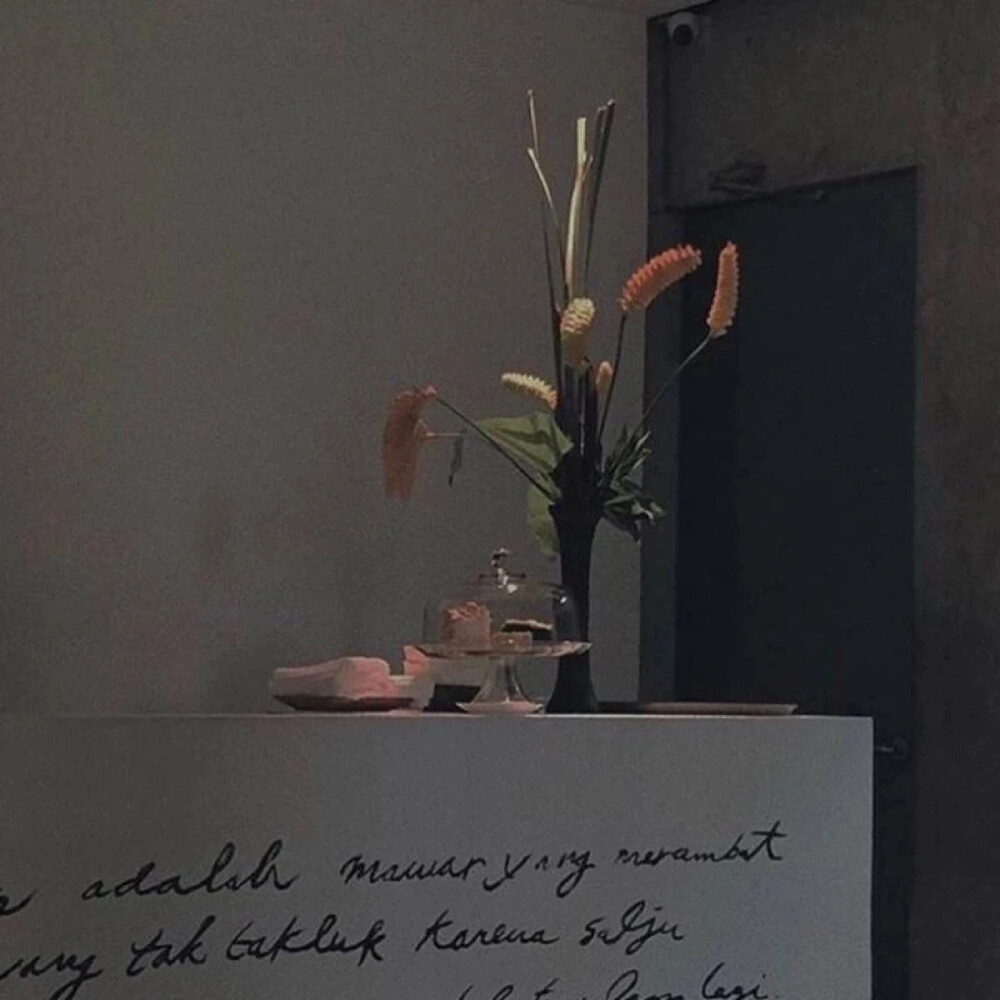 adalah mawar yang merambat
yang tak takluk karena salju
lagi.